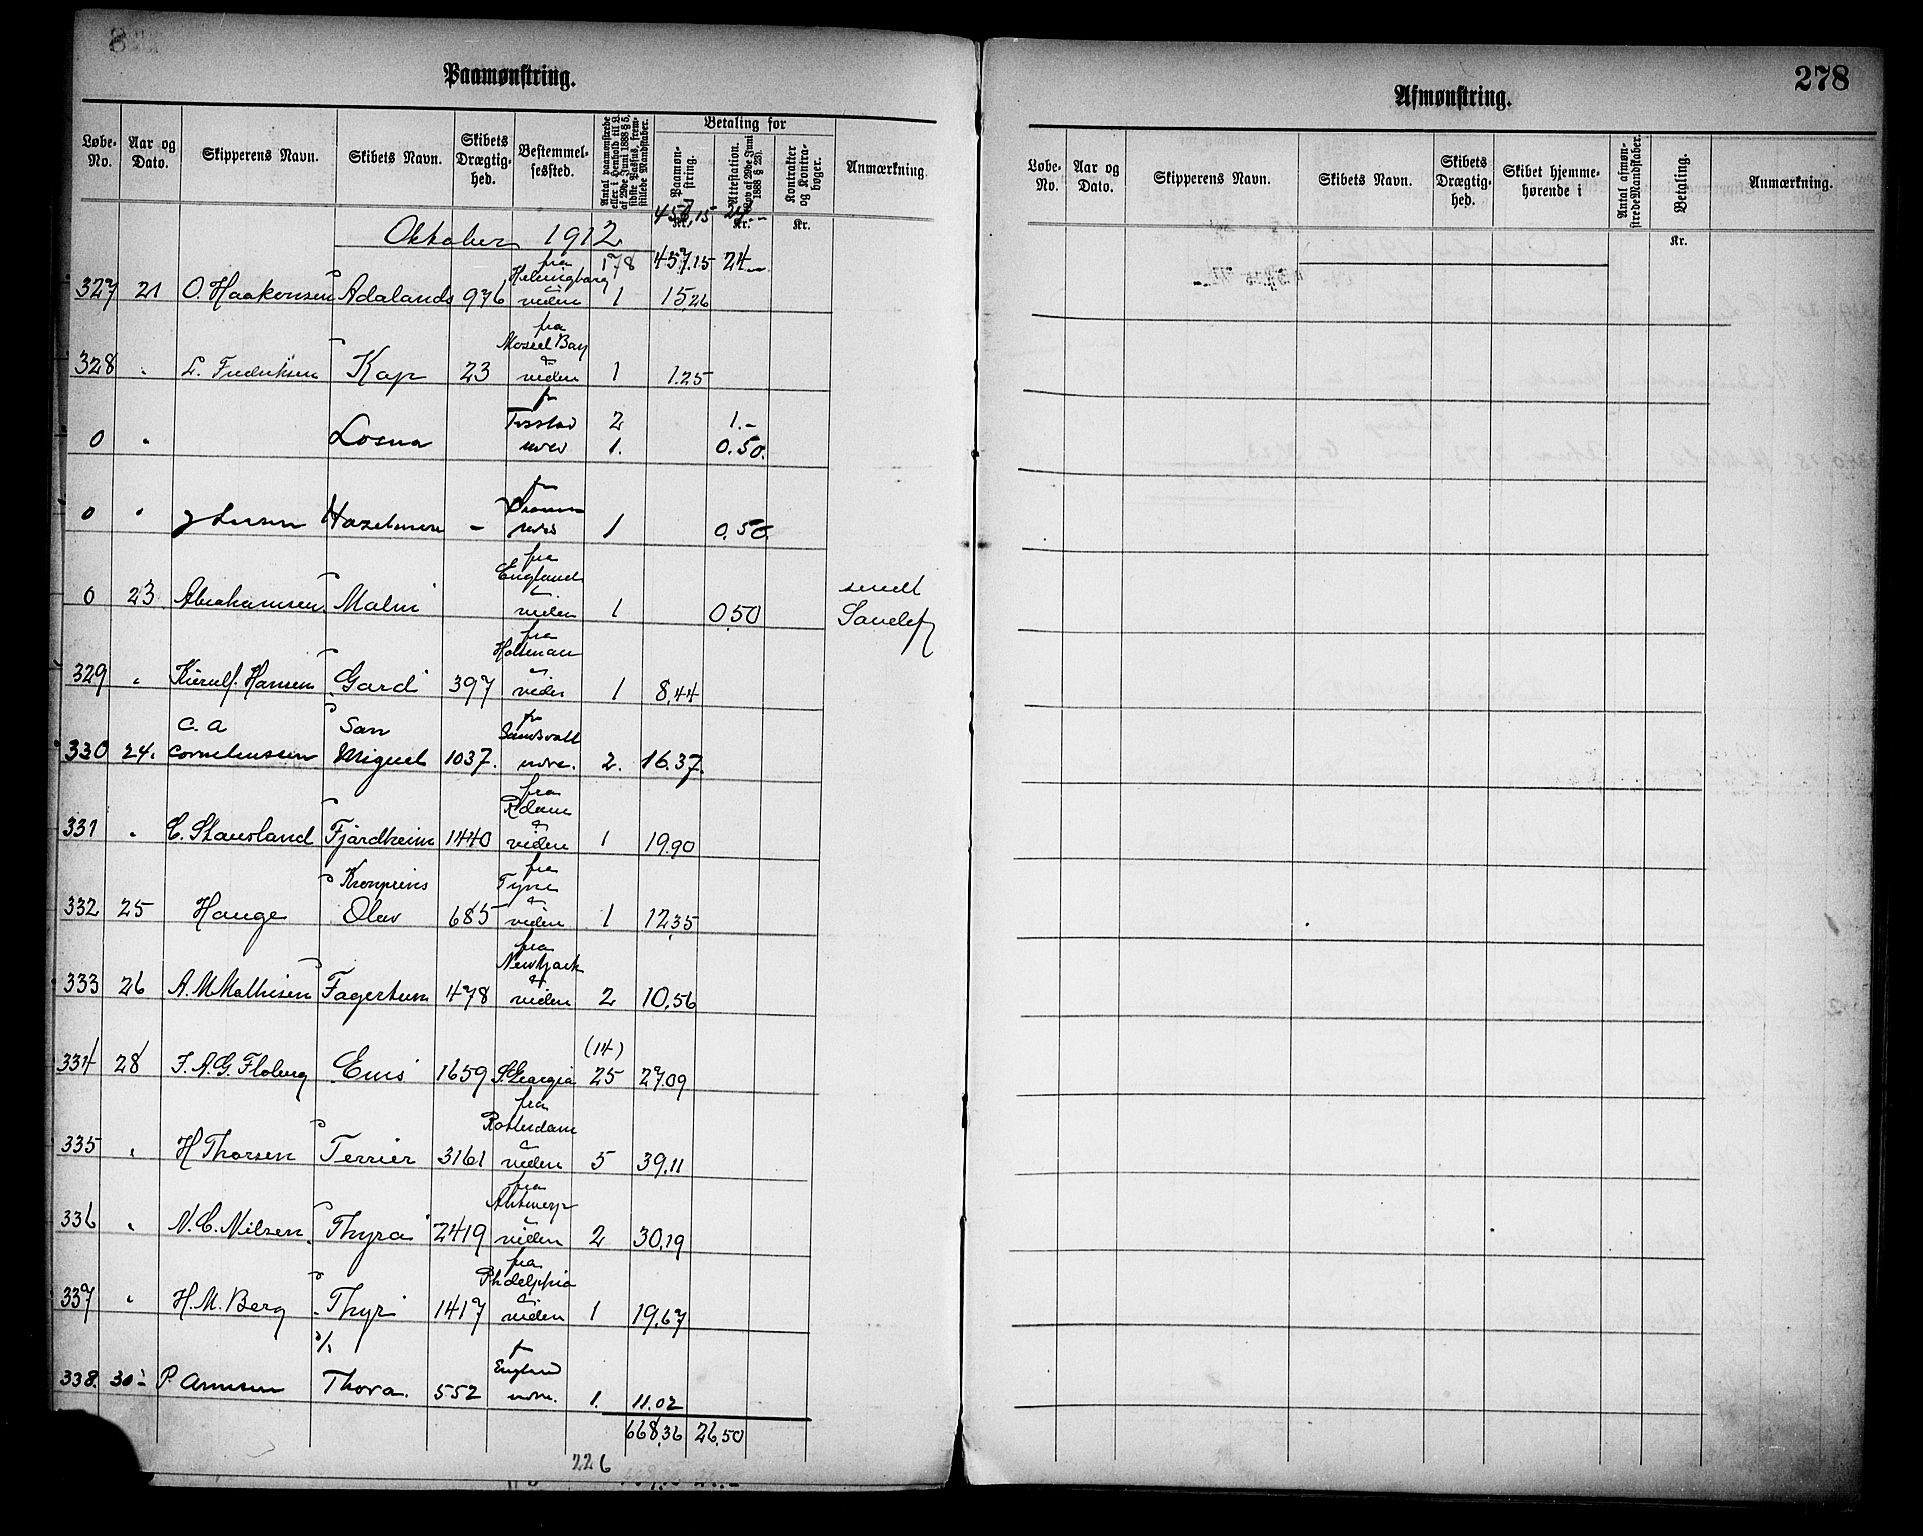 Paamønstring.
Løbe-No. Aar og Dato. Skipperens Navn. Skibets Navn. Skibets Drægtighed. Bestemmelsessted. Antal paamønstrede eller i Henhold til L. af 29de Juni 1888 § 5, sidste Passus, fremstillede Mandskaber. Betaling for Paamønstring. Kr. Attestation. (Lov af 29de Juni 1888 § 25). Kr. Kontrakter og Kontrabøger. Kr. Anmærkning.
457,15 24,--
Oktober 1912
178 457.15 24,--
fra Helsingborg
327 21 O. Haakonsen Adalands 976 viden 1 15,26
fra Mossel Bay
328 " L. Fredriksen Kap 23 viden 1 1.25
2 1.-
0 " Losna 1. 0.50.
0 " Hazelmere - 1 0.50.
fra England
0 23 Abrahamsen Malm viden 1 0,50 sendt Sandefj
fra
329 " Kierulf. Hansen Gard 397 viden 1 8,44
C. A San fr Sundsvall
330 24. Corneliussen Miguel 1037. 2. 16.37.
fra Rdam
331 " C. Stausland Fjordheim 1440 viden 1 19.90
Kronprins fra Tyne
332 25 Hauge Olav 685 viden 1 12,35
fra New York
333 26 A. M Mathisen Fagerheim 478 viden 2 10,56
(14)
334 28 F. A. G. Floberg Ems 1659 S. Georgia 25 27.09
fra Rotterdam
335 " H Thorsen Terrier 3161 viden 5 39,11
fra Antwerp
336 " N. C. Nilsen Thyra 2419 viden 2 30,19
fra Phdelphia
337 " H. M. Berg Thyri 1417 viden 1 19,67
f England
338. 30 P. Arnesen Thora. 552 1. 11.02
668,36 26,50
226
278
Afmønstring.
Løbe-No. Aar og Dato. Skipperens Navn. Skibets Navn. Skibets Drægtighed. Skibet hjemmehørende i Antal afmønstrede Mandskaber. Betaling. Kr. Anmærkning.